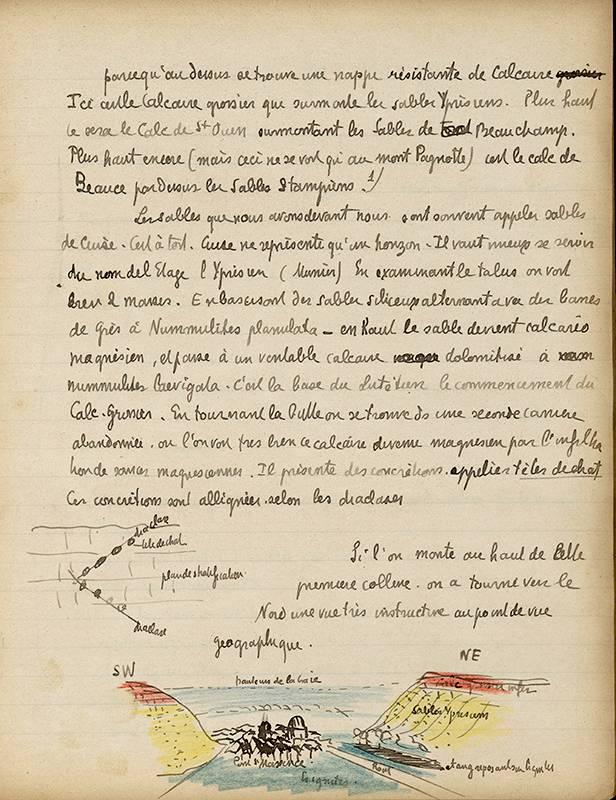 parcequ'au dessus se trouve une nappe résistante de Calcaire grossier
Ici c'est le Calcaire grossier que surmonte les sables Yprésiens. Plus haut
ce sera le Calc de St Ouen surmontant les Sables de Beauchamp.
Plus haut encore (mais ceci ne se voit qu'au mont Pagnotte) c'est le calc de
Beauce par dessus les Sables Stampiens. 1)
Les sables que nous avons devant nous sont souvent appelés sables
de Cuise. C'est à tort. Cuise ne représente qu'un horizon. Il vaut mieux se servir
du nom de l'Etage l'Yprésien (Munier) En examinant le talus on voit
bien 2 masses. En bas ce sont des sables siliceux alternant avec des bancs
de grès à Nummulites planulata - en haut le sable devient calcaréo
magnésien, et passe à un véritable calcaire dolomitisé à
nummulites laevigata. C'est la base du Lutétien le commencement du
Calc. Grossier. En tournant la butte on se trouve ds une seconde carrière
abandonnée. où l'on voit très bien ce calcaire devenu magnésien par l'infiltra
tion de sources magnésiennes. Il présente des concrétions. appelées têtes de chat
Ces concrétions sont allignées selon les diaclases
diaclase
tête de chat
plan de stratification
diaclase
Si l'on monte au haut de cette
première colline. on a tourné vers le
Nord une vue très instructive au point de vue
géographique.
SW
NE
hauteurs de
sables Yprésiens
Pont Ste Maxence
Lignites.
étang reposant sur lignites